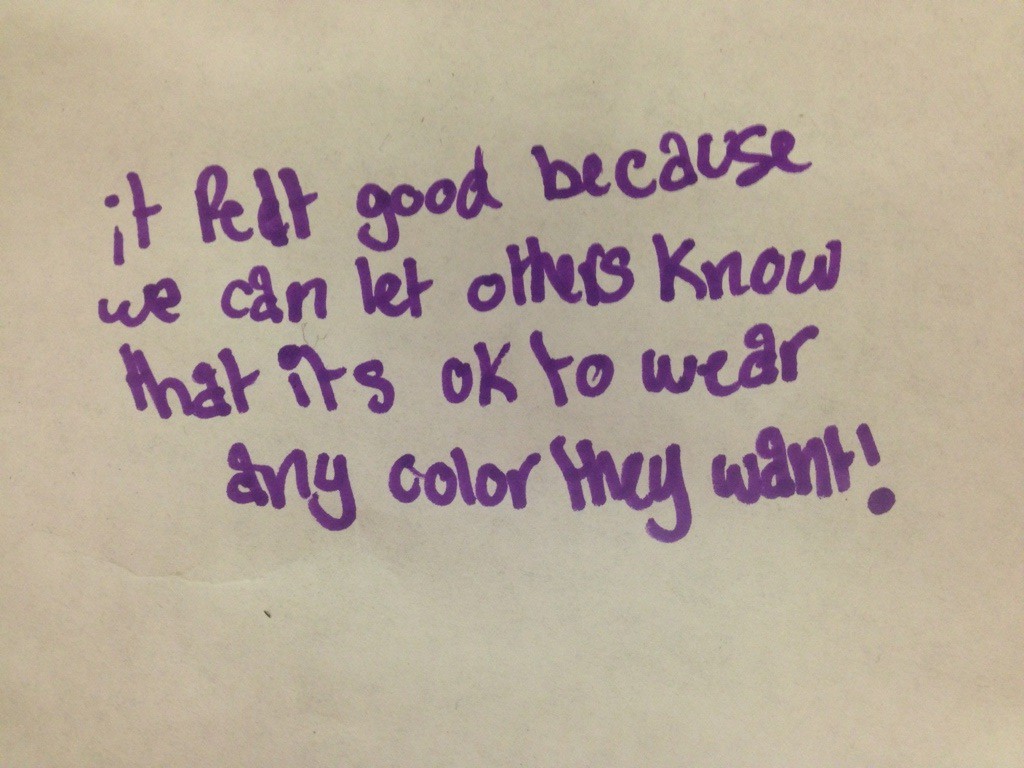 it felt good because
we can let others know
that its ok to wear
any color they want!